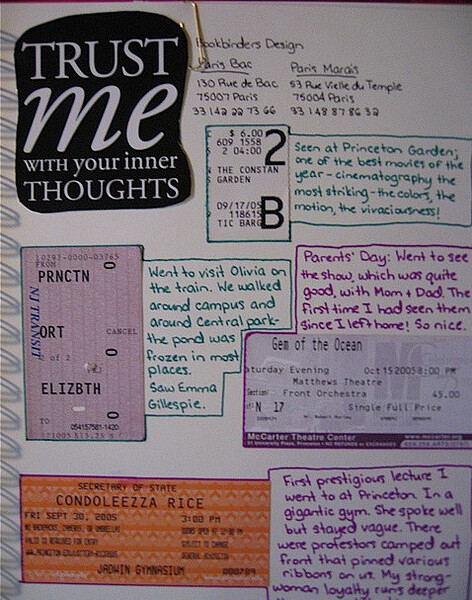 TRUST
me
WITH your inner
THOUGHTS
Bookbinders Design
Paris Bac
130 Rue de Bac
75007 Paris
33 1 42 22 73 66
Paris Marais
53 Rue Vielle du Temple
75004 Paris
33 1 48 87 86 32
$ 6.00
609 1558
2 04:00
2
THE CONSTAN
GARDEN
09/17/05
118615
TIC BARG
B
Seen at Princeton Garden;
one of the best movies of the
year - cinematography the
most striking - the colors, the
motion, the vivaciousness!
10297-0000-03765
FROM
PRNCTN
NJ TRANSIT
ORT
CANCEL
2 of 2
ELIZBTH
TO
054157581-1420
Went to visit Olivia on
the train. We walked
around campus and
around Central park-
the pond was
frozen in most
places.
Saw Emma
Gillespie.
Parents' Day: Went to see
the show, which was quite
good, with Mom & Dad. The
first time I had seen them
since I left home! So nice.
Gem of the Ocean
aturday Evening Oct 15 2005 8:00 PM
Matthews Theatre
Section: Front Orchestra 45.00
N 17 Single Full Price
McCarter Theatre Center
91 University Place, Princeton • NO REFUNDS or EXCHANGES
www.mccarter.org
SECRETARY OF STATE
CONDOLEEZZA RICE
FRI SEPT 30, 2005 3:00 PM
NO BACKPACKS, CAMERAS, OR UMBRELLAS
VALID ID REQUIRED FOR ENTRY
SUBJECT TO CHANGE
GENERAL ADMISSION
JADWIN GYMNASIUM
First prestigious lecture I
went to at Princeton. In a
gigantic gym. She spoke well
but stayed vague. There
were protestors camped out
front that pinned various
ribbons on us. My strong-
woman loyalty runs deeper